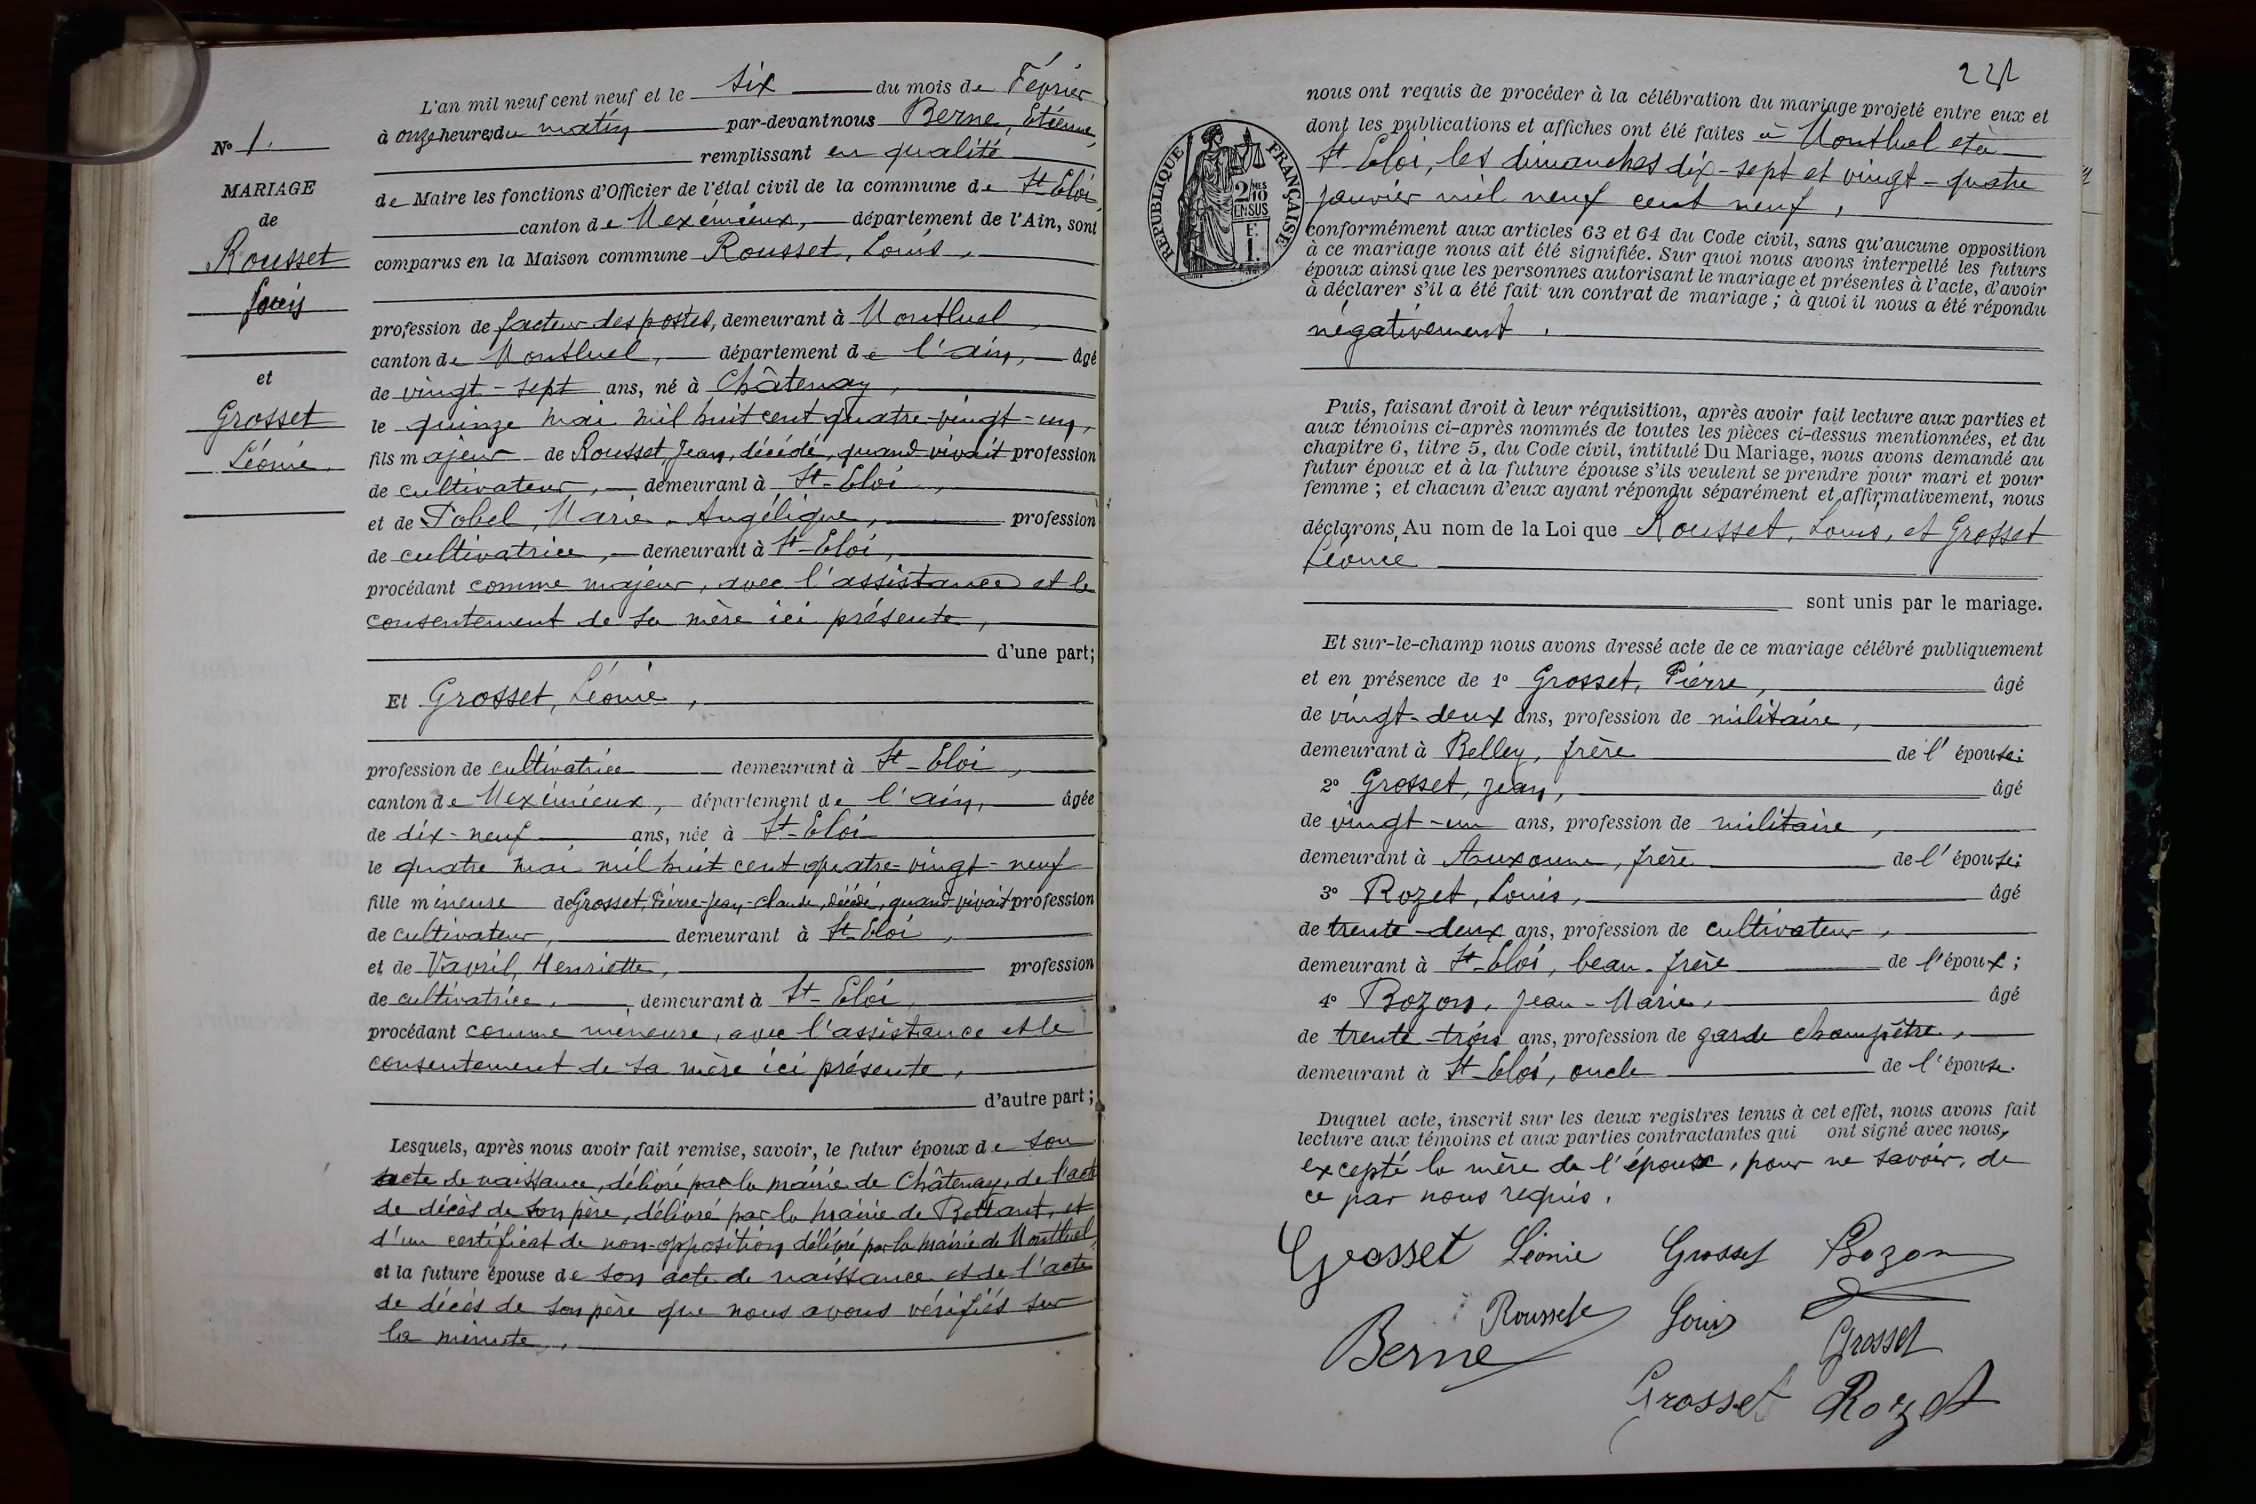 L'an mil neuf cent neuf et le six du mois de Février
à onze heures du matin par-devant nous Berne, Etienne,
remplissant en qualité
de Maire les fonctions d'Officier de l'état civil de la commune de St-Eloi,
canton de Meximieux, département de l'Ain, sont
comparus en la Maison commune Rousset, Louis,
profession de facteur des postes, demeurant à Montluel,
canton de Montluel, département de l'ain, âgé
de vingt-sept ans, né à Châtenay,
le quinze mai mil huit cent quatre-vingt-un,
fils majeur de Rousset, Jean, décédé, quand vivait profession
de cultivateur, demeurant à St-Eloi,
et de Pobel, Marie-Angélique, profession
de cultivatrice, demeurant à St-Eloi,
procédant comme majeur, avec l'assistance et le
consentement de sa mère ici présente,
d'une part;
Et Grosset, Léonie,
profession de cultivatrice demeurant à St-Eloi,
canton de Meximieux, département de l'ain, âgée
de dix-neuf ans, née à St-Eloi
le quatre mai mil huit cent quatre-vingt-neuf
fille mineure de Grosset, Pierre-Jean-Claude, décédé, quand vivait profession
de cultivateur, demeurant à St-Eloi,
et de Vavril, Henriette, profession
de cultivatrice, demeurant à St-Eloi,
procédant comme mineure, avec l'assistance et le
consentement de sa mère ici présente,
d'autre part;
Lesquels, après nous avoir fait remise, savoir, le futur époux de son
acte de naissance, délivré par la mairie de Châtenay, de l'acte
de décès de son père, délivré par la mairie de et
d'un certificat de non-opposition délivré par la mairie de Montluel,
et la future épouse de son acte de naissance et de l'acte
de décès de son père que nous avons vérifiés sur
la minute.
N° 1.
MARIAGE
de
Rousset
Louis
et
Grosset
Léonie.
221
nous ont requis de procéder à la célébration du mariage projeté entre eux et
dont les publications et affiches ont été faites à Montluel et à
St Eloi, les dimanches dix-sept et vingt-quatre
janvier mil neuf cent neuf,
conformément aux articles 63 et 64 du Code civil, sans qu'aucune opposition
à ce mariage nous ait été signifiée. Sur quoi nous avons interpellé les futurs
époux ainsi que les personnes autorisant le mariage et présentes à l'acte, d'avoir
à déclarer s'il a été fait un contrat de mariage ; à quoi il nous a été répondu
négativement.
RÉPUBLIQUE FRANÇAISE
2/10
EN SUS
Puis, faisant droit à leur réquisition, après avoir fait lecture aux parties et
aux témoins ci-après nommés de toutes les pièces ci-dessus mentionnées, et du
chapitre 6, titre 5, du Code civil, intitulé Du Mariage, nous avons demandé au
futur époux et à la future épouse s'ils veulent se prendre pour mari et pour
femme ; et chacun d'eux ayant répondu séparément et affirmativement, nous
déclarons, Au nom de la Loi que Rousset, Louis, et Grosset
Léonie
sont unis par le mariage.
Et sur-le-champ nous avons dressé acte de ce mariage célébré publiquement
et en présence de 1° Grosset, Pierre, âgé
de vingt-deux ans, profession de militaire,
demeurant à Belley, frère de l'épouse;
2° Grosset, Jean, âgé
de vingt-un ans, profession de militaire,
demeurant à Auxonne, frère de l'épouse;
3° Rozet, Louis, âgé
de trente-deux ans, profession de cultivateur,
demeurant à St-Eloi, beau-frère de l'époux;
4° Bozon, Jean-Marie, âgé
de trente-trois ans, profession de garde champêtre,
demeurant à St-Eloi, oncle de l'épouse.
Duquel acte, inscrit sur les deux registres tenus à cet effet, nous avons fait
lecture aux témoins et aux parties contractantes qui ont signé avec nous,
excepté la mère de l'époux, pour ne savoir, de
ce par nous requis.
Grosset Léonie Grosset Bozon
Rousset Louis Grosset
Berne
Grosset Rozet